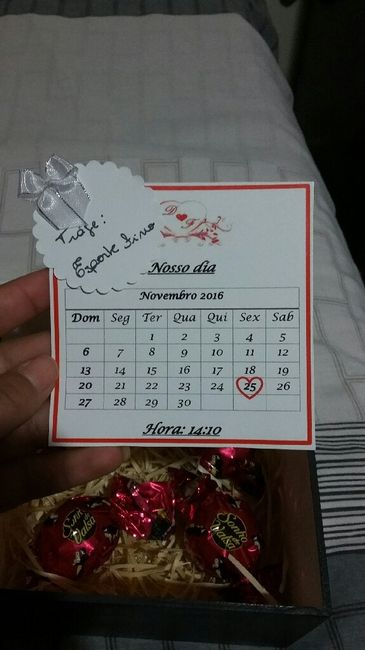 Traje:
Esporte Fino
D F
Nosso dia
Novembro 2016
Dom Seg Ter Qua Qui Sex Sab
1 2 3 4 5
6 7 8 9 10 11 12
13 14 15 16 17 18 19
20 21 22 23 24 25 26
27 28 29 30
Hora: 14:10
Sonho de Valsa
Sonho de Valsa